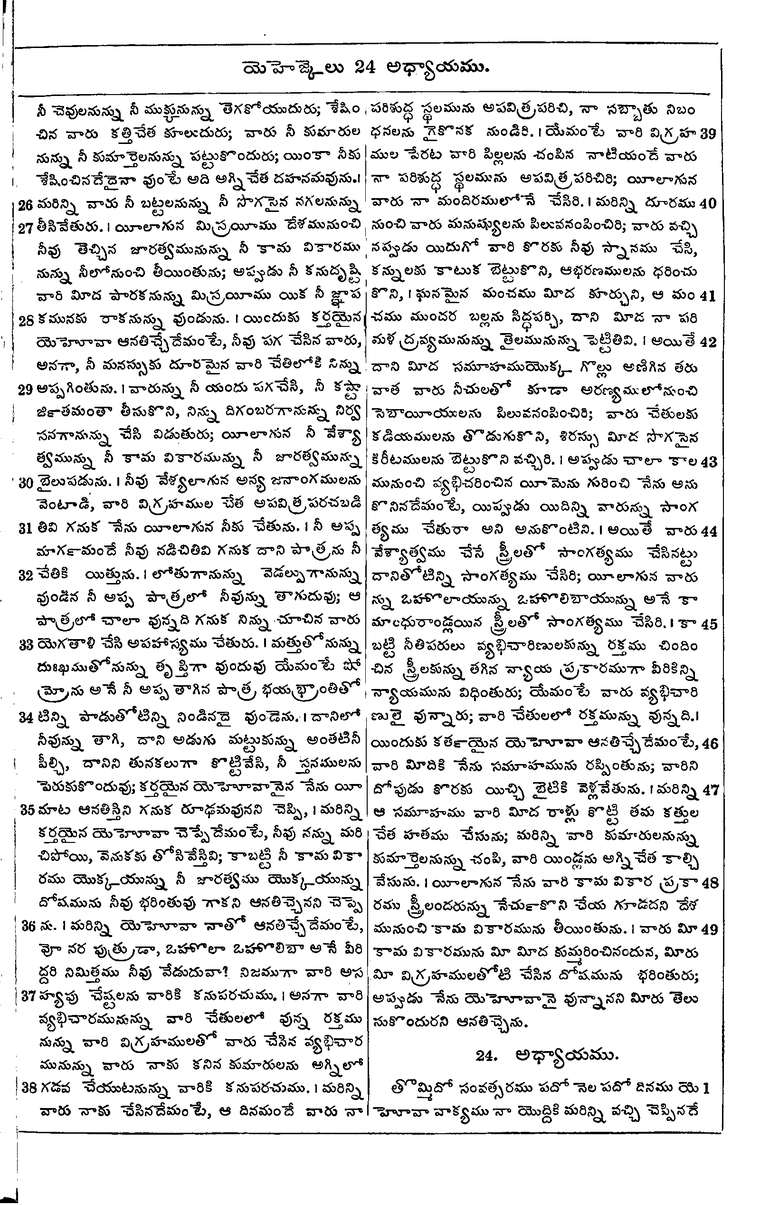 యెహెజ్కెలు 24 అధ్యాయము.
నీ చెవులనున్ను నీ ముక్కునున్ను తెగకోయుదురు; శేషిం
చిన వారు కత్తిచేత కూలుదురు; వారు నీ కుమారుల
నున్ను నీ కుమార్తెలనున్ను పట్టుకొందురు; యింకా నీకు
శేషించినదేదైనా వుంటే అది అగ్నిచేత దహనమవును.।
26 మరిన్ని వారు నీ బట్టలనున్ను నీ సొగసైన నగలనున్ను
27 తీసివేతురు. । యీలాగున మిస్రయీము దేశమునుంచి
నీవు తెచ్చిన జారత్వమునున్ను నీ కామ వికారము
నున్ను నీలోనుంచి తీయింతును; అప్పుడు నీ కనుదృష్టి
వారి మీద పారకనున్ను మిస్రయీము యిక నీ జ్ఞాప
28 కమునకు రాకనున్ను వుండును. । యిందుకు కర్తయైన
యెహోవా ఆనతిచ్చేదేమంటే, నీవు పగ చేసిన వారు,
అనగా, నీ మనస్సుకు దూరమైన వారి చేతిలోకి నిన్ను
29 అప్పగింతును. । వారున్ను నీ యందు పగచేసి, నీ కష్టా
జిణాతమంతా తీసుకొని, నిన్ను దిగంబరగానున్ను నిర్వ
సనగానున్ను చేసి విడుతురు; యీలాగున నీ వేశ్యా
త్వమున్ను నీ కామ వికారమున్ను నీ జారత్వమున్ను
30 బైలుపడును. । నీవు వేశ్యలాగున అన్య జనాంగములను
వెంటాడి, వారి విగ్రహముల చేత అపవిత్రపరచబడి
31 తివి గనుక నేను యీలాగున నీకు చేతును. । నీ అప్ప
మాగణమందే నీవు నడిచితివి గనుక దాని పాత్రను నీ
32 చేతికి యిత్తును. । లోతుగానున్ను వెడల్పుగానున్ను
వుండిన నీ అప్ప పాత్రలో నీవున్ను తాగుదువు; ఆ
పాత్రలో చాలా వున్నది గనుక నిన్ను చూచిన వారు
33 యెగతాళి చేసి అపహాస్యము చేతురు. । మత్తుతోనున్ను
దుఃఖముతోనున్ను తృప్తిగా వుందువు యేమంటే షో
మ్రోను అనే నీ అప్ప తాగిన పాత్ర భయభ్రాంతితో
34 టిన్ని పాడుతోటిన్ని నిండినదై వుండెను. । దానిలో
నీవున్ను తాగి, దాని అడుగు మట్టుకున్ను అంతటినీ
పీల్చి, దానిని తునకలుగా కొట్టివేసి, నీ స్తనములను
పెరుకుకొందువు; కర్తయైన యెహోవానైన నేను యీ
35 మాట ఆనతిస్తిని గనుక రూఢమవునని చెప్పి, । మరిన్ని
కర్తయైన యెహోవా చెప్పేదేమంటే, నీవు నన్ను మరి
చిపోయి, వెనుకకు తోసివేస్తివి; కాబట్టి నీ కామ వికా
రము యొక్కయున్ను నీ జారత్వము యొక్కయున్ను
దోషమును నీవు భరింతువు గాకని ఆనతిచ్చెనని చెప్పె
36 ను. । మరిన్ని యెహోవా నాతో ఆనతిచ్చేదేమంటే,
వో నర పుత్రుడా, ఒహొలా ఒహొలిబా అనే వీరి
ద్దరి నిమిత్తము నీవు వేడుదువా? నిజముగా వారి అస
37 హ్యపు చేష్టలను వారికి కనుపరచుము. । అనగా వారి
వ్యభిచారమునున్ను వారి చేతులలో వున్న రక్తము
నున్ను వారి విగ్రహములతో వారు చేసిన వ్యభిచార
మునున్ను వారు నాకు కనిన కుమారులను అగ్నిలో
38 గడవ చేయుటనున్ను వారికి కనుపరచుము. । మరిన్ని
వారు నాకు చేసినదేమంటే, ఆ దినమందే వారు నా
పరిశుద్ధ స్థలమును అపవిత్రపరిచి, నా సబ్బాతు నిబం
ధనలను గైకొనక నుండిరి. । యేమంటే వారి విగ్రహ 39
ముల పేరట వారి పిల్లలను చంపిన నాటియందే వారు
నా పరిశుద్ధ స్థలమును అపవిత్రపరిచిరి; యీలాగున
వారు నా మందిరములోనే చేసిరి. । మరిన్ని దూరము 40
నుంచి వారు మనుష్యులను పిలువనంపించిరి; వారు వచ్చి
నప్పుడు యిదుగో వారి కొరకు నీవు స్నానము చేసి,
కన్నులకు కాటుక బెట్టుకొని, ఆభరణములను ధరించు
కొని, । ఘనమైన మంచము మీద కూర్చుని, ఆ మం 41
చము ముందర బల్లను సిద్ధపర్చి, దాని మీద నా పరి
మళ ద్రవ్యమునున్ను తైలమునున్ను పెట్టితివి. । అయితే 42
దాని మీద సమూహముయొక్క గొల్లు అణిగిన తరు
వాత వారు నీచులతో కూడా అరణ్యములోనుంచి
సెబాయీయులను పిలువనంపించిరి; వారు చేతులకు
కడియములను తొడుగుకొని, శిరస్సు మీద సొగసైన
కిరీటములను బెట్టుకొని వచ్చిరి. । అప్పుడు చాలా కాల 43
మునుంచి వ్యభిచరించిన యీమెను గురించి నేను అను
కొనినదేమంటే, యిప్పుడు యిదిన్ని వారున్ను సాంగ
త్యము చేతురా అని అనుకొంటిని. । అయితే వారు 44
వేశ్యాత్వము చేసే స్త్రీలతో సాంగత్యము చేసినట్టు
దానితోటిన్ని సాంగత్యము చేసిరి; యీలాగున వారు
న్ను ఒహొలాయున్ను ఒహొలిబాయున్ను అనే కా
మాంధురాండ్లయిన స్త్రీలతో సాంగత్యము చేసిరి. । కా 45
బట్టి నీతిపరులు వ్యభిచారిణులకున్ను రక్తము చిందిం
చిన స్త్రీలకున్ను తగిన న్యాయ ప్రకారముగా వీరికిన్ని
న్యాయమును విధింతురు; యేమంటే వారు వ్యభిచారి
ణులై వున్నారు; వారి చేతులలో రక్తమున్ను వున్నది.।
యిందుకు కర్తయైన యెహోవా ఆనతిచ్చేదేమంటే, 46
వారి మీదికి నేను సమూహమును రప్పింతును; వారిని
దోపుడు కొరకు యిచ్చి బైటికి వెళ్లవేతును. । మరిన్ని 47
ఆ సమూహము వారి మీద రాళ్లు కొట్టి తమ కత్తుల
చేత హతము చేసును; మరిన్ని వారి కుమారులనున్ను
కుమార్తెలనున్ను చంపి, వారి యిండ్లను అగ్నిచేత కాల్చి
వేసును. । యీలాగున నేను వారి కామ వికార ప్రకా 48
రము స్త్రీలందరున్ను నేర్చుకొని చేయ గూడదని దేశ
మునుంచి కామ వికారమును తీయింతును. । వారు మీ 49
కామ వికారమును మీ మీద కుమ్మరించినందున, మీరు
మీ విగ్రహములతోటి చేసిన దోషమును భరింతురు;
అప్పుడు నేను యెహోవానై వున్నానని మీరు తెలు
సుకొందురని ఆనతిచ్చెను.
24. అధ్యాయము.
తొమ్మిదో సంవత్సరము పదో నెల పదో దినము యె 1
హోవా వాక్యము నా యొద్దికి మరిన్ని వచ్చి చెప్పినదే